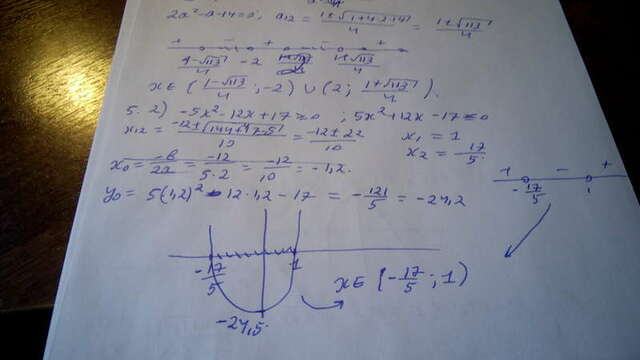 2a² - a - 14 = 0; a₁₂ = (1±√(1+4·2·14))/4 = (1±√113)/4
+ - + - +
(1-√113)/4 -2 (1+√113)/4
x∈ ((1-√113)/4; -2) ∪ (2; (1+√113)/4).
5. 2) -5x² - 12x + 17 ≥ 0; 5x² + 12x - 17 ≤ 0
x₁₂ = (-12 ± √(144+4·17·5))/10 = (-12 ± 22)/10 x₁ = 1
x₂ = -17/5.
x₀ = -b/2a = -12/(5·2) = -12/10 = -1,2.
+ - +
-17/5 1
y₀ = 5(1,2)² - 12·1,2 - 17 = -121/5 = -24,2
-17/5 1
x∈ (-17/5; 1)
-24,5.